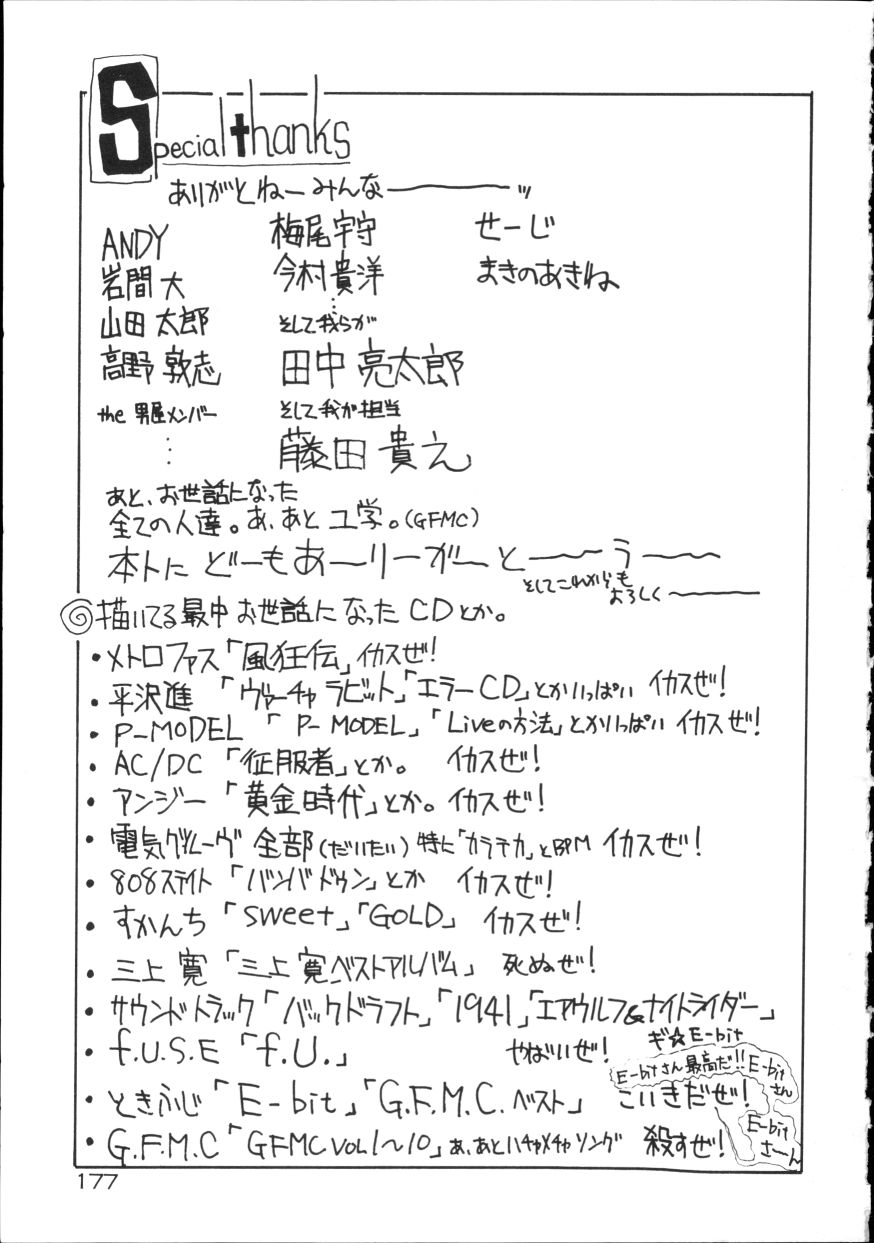 Special thanks
ありがとねーみんなーーーッ
ANDY
岩間 大
山田 太郎
高野 敦志
the 男屋メンバー
⋮
梅尾宇守
今村貴洋
⋮
そして我らが
田中 亮太郎
そして我が担当
藤田 貴え
せーじ
まきのあきね
あと、お世話になった
全ての人達。あ、あと ユ学。(GFMC)
本トに どーもあーりーがーとーーうーー
そしてこれからも
よろしく〜
描いてる最中お世話になったCDとか。
・メトロファス「風狂伝」イカスぜ!
・平沢進 「ヴァーチャラビット」「エラーCD」とかいっぱい イカスぜ!
・P-MODEL 「P-MODEL」「Liveの方法」とかいっぱい イカスぜ!
・AC/DC 「征服者」とか。 イカスぜ!
・アンジー「黄金時代」とか。イカスぜ!
・電気グルーヴ 全部(だいたい)特に「カラテカ」とBPM イカスぜ!
・808ステイト「バンバドゥン」とか イカスぜ!
・すかんち「sweet」「GOLD」 イカスぜ!
・三上 寛「三上 寛ベストアルバム」 死ぬぜ!
・サウンドトラック「バックドラフト」「1941」「エアウルフ&ナイトライダー」
ギ☆E-bit
・f.U.S.E「f.U.」 やばいぜ!
E-bitさん最高だ!!
E-bit
さん
・ときふじ「E-bit」「G.F.M.C.ベスト」 こいきだぜ!
E-bit
さーん
・G.F.M.C「GFMC VOL 1〜10」あ、あとハチャメチャソング 殺すぜ!
177